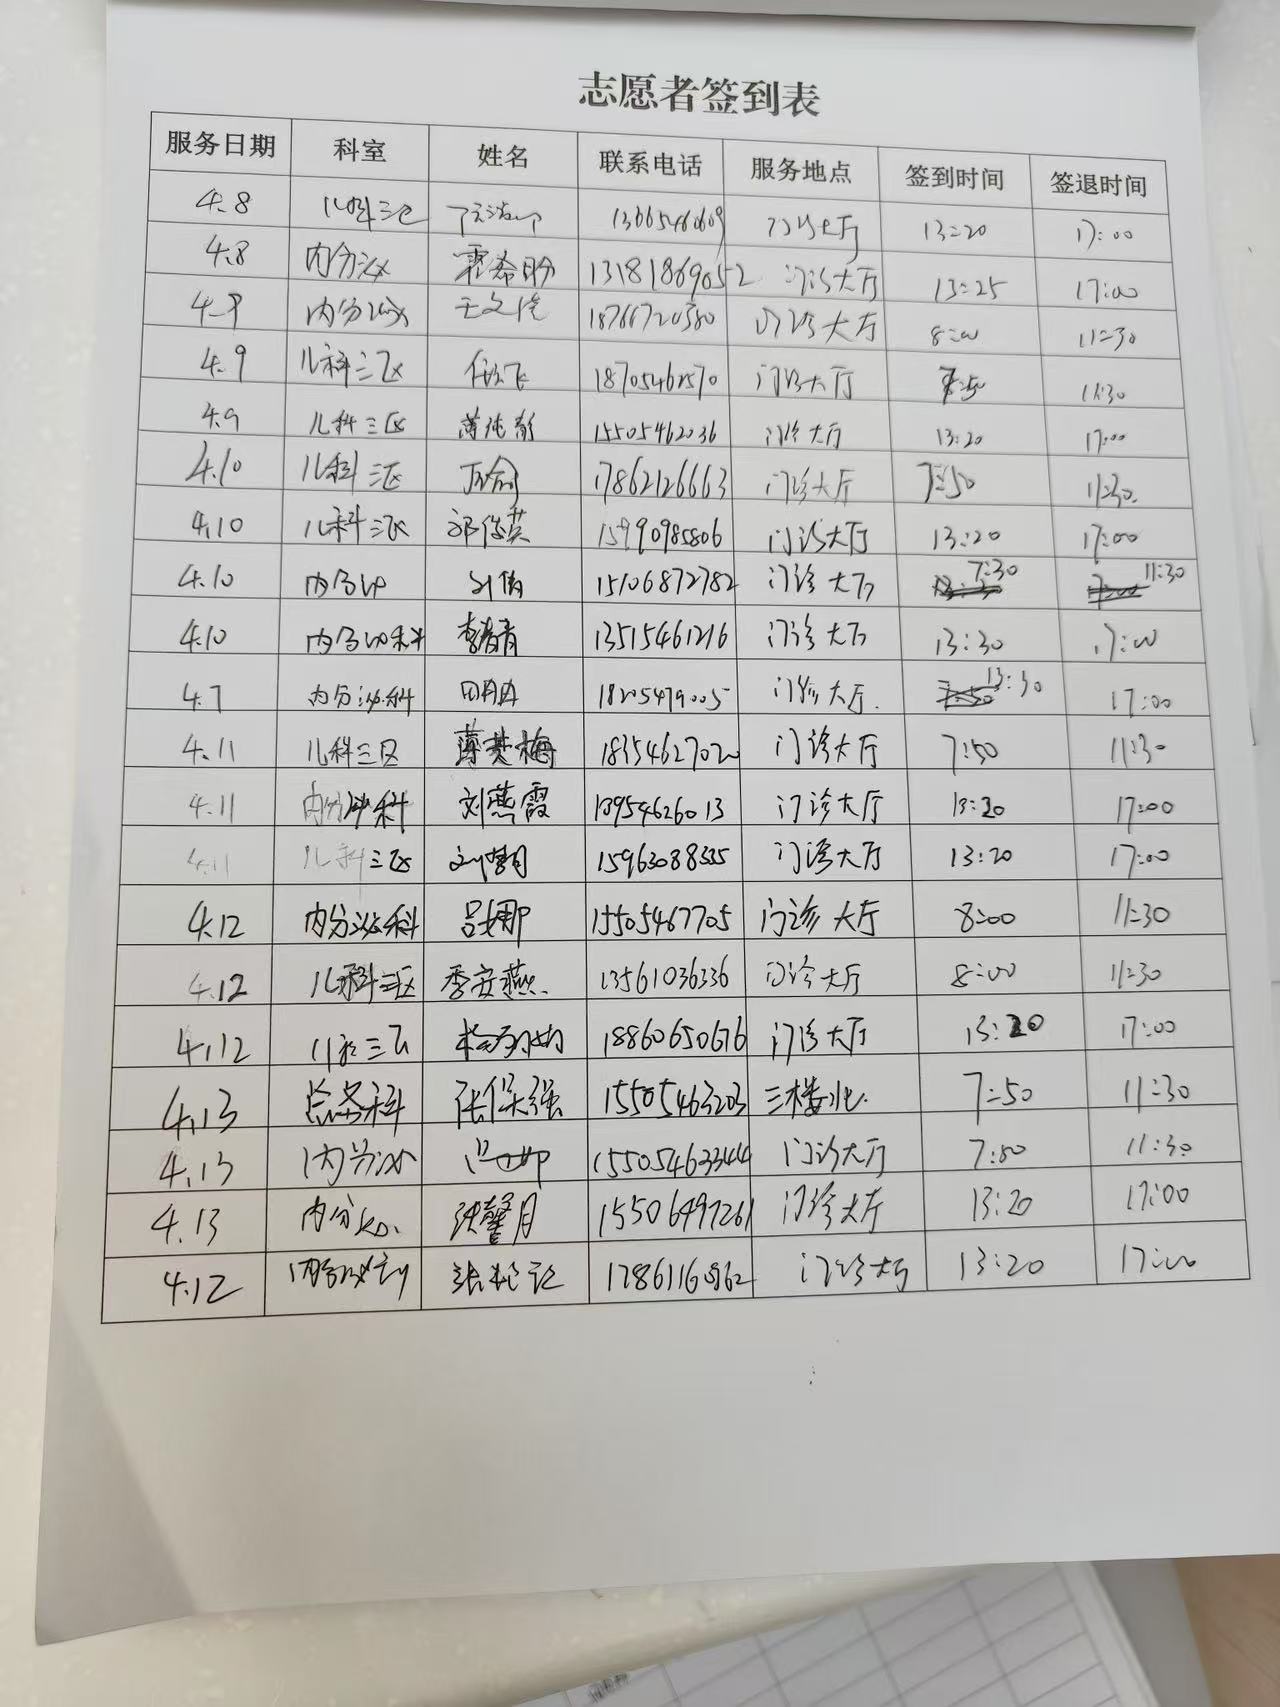 志愿者签到表
服务日期 科室 姓名 联系电话 服务地点 签到时间 签退时间
4.8 儿科三区 13665460609 门诊大厅 13:20 17:00
4.8 内分泌 霍希盼 13181869052 门诊大厅 13:25 17:00
4.9 内分泌 门诊大厅 8:00 11:30
4.9 儿科三区 任欣飞 门诊大厅 7:50 11:30
4.9 儿科三区 15505462036 门诊大厅 13:20 17:00
4.10 儿科三区 17862126663 门诊大厅 7:50 11:30
4.10 儿科三区 15990985806 门诊大厅 13:20 17:00
4.10 内分泌 刘倩 15106872782 门诊大厅 7:30 11:30
4.10 内分泌科 李春青 13515461216 门诊大厅 13:30 17:00
4.7 内分泌科 18205479005 门诊大厅. 13:30 17:00
4.11 儿科三区 薄其梅 18354627020 门诊大厅 7:50 11:30
4.11 内分泌科 刘燕霞 13954626013 门诊大厅 13:20 17:00
4.11 儿科三区 门诊大厅 13:20 17:00
4.12 内分泌科 吕娜 15505467705 门诊大厅 8:00 11:30
4.12 儿科三区 季安燕. 13561036336 门诊大厅 8:00 11:30
4.12 儿科三区 18860650676 门诊大厅 13:20 17:00
4.13 总务科 张保强 15505463203 三楼北. 7:50 11:30
4.13 内分泌 15505463344 门诊大厅 7:50 11:30
4.13 内分泌. 张馨月 15506497261 门诊大厅 13:20 17:00
4.12 内分泌 17861160962 门诊大厅 13:20 17:00